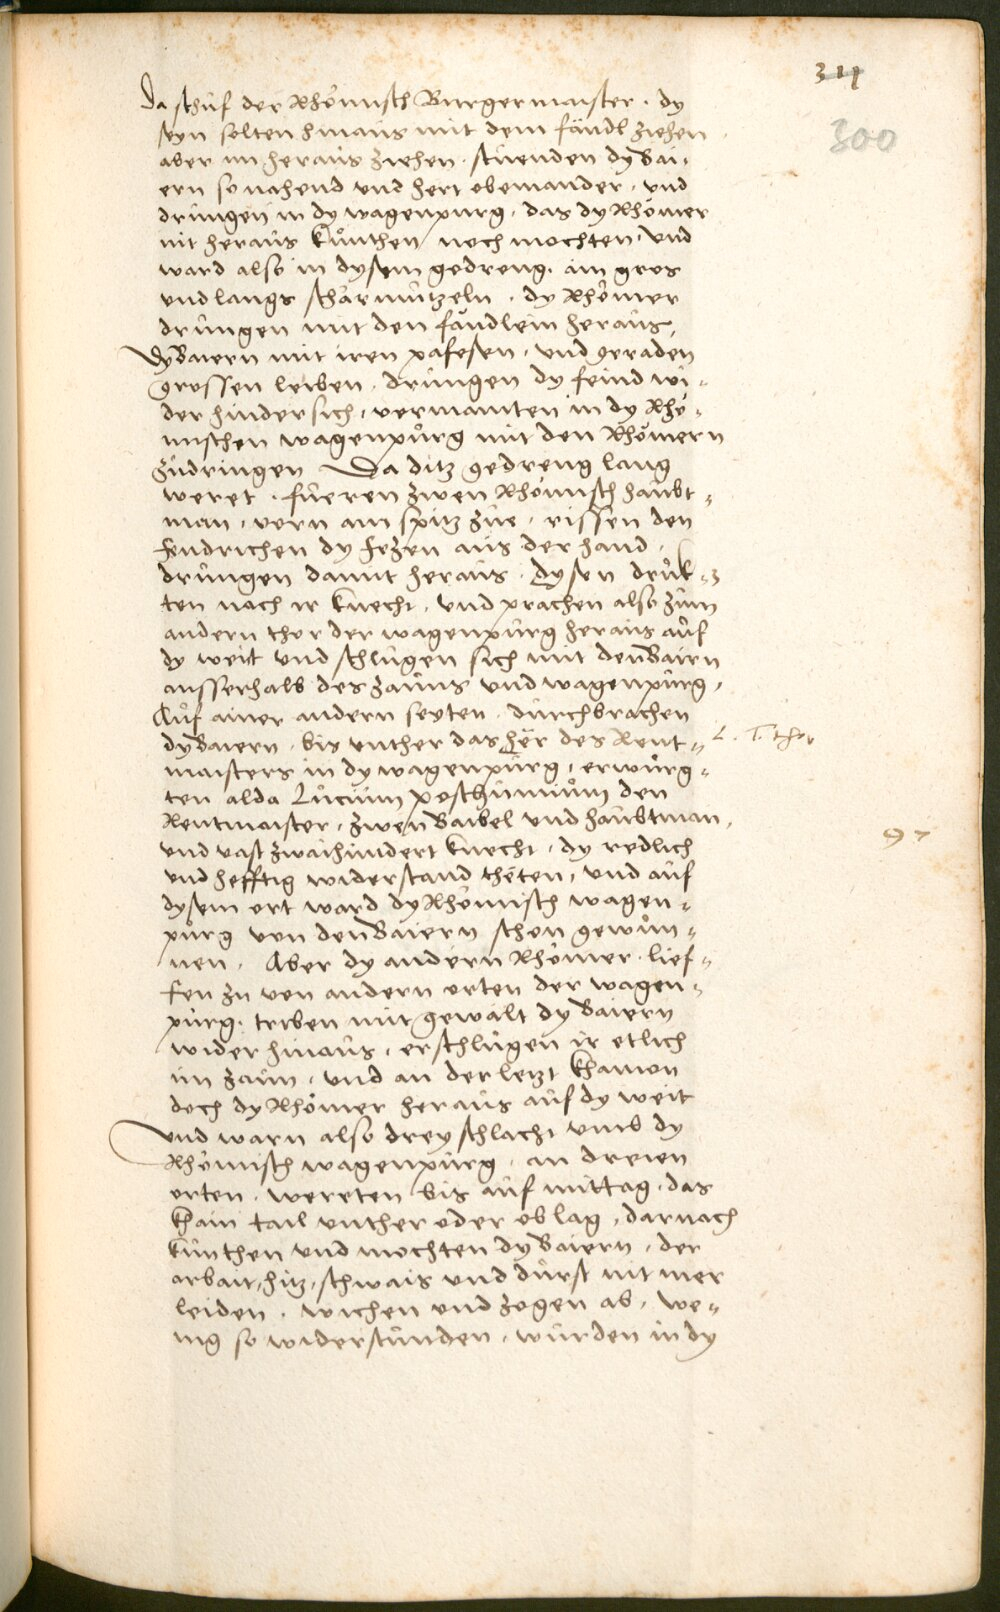 311
300
Da schuf der Rhömisch Burgermaister . dy
seyn solten hinaus mit dem fändl ziehen
aber im heraus ziehen . stuenden dy Bai-
ern so nahend und hert obeinander . und
drungen in dy wagenpurg . das dy Rhömer
nit heraus kunthen noch mochten . und
ward also in dysem gedreng . ain gros
und langs scharmutzeln . dy Rhömer
drungen mit den fändlein heraus,
dy Baiern mit iren pafesen . und geraden
grossen leiben . drungen dy feind wi-
der hindersich, vermainten in dy Rhö-
mischen wagenpurg mit den Rhömern
zudringen Da ditz gedreng lang
weret . fueren zwen Rhömisch haubt-
man, vorn am spitz zue, rissen den
fendrichen dy fezen aus der hand,
drungen damit heraus . dysen druk-
ten nach ir knecht, und prachen also zum
andern thor der wagenpurg heraus auf
dy weit und schlugen sich mit den Bairn
ausserhalb des zauns und wagenpurg,
Auf ainer andern seyten . durchbrachen
dy Baiern . bis unther das her des Rent-
L. T. thor
maisters in dy wagenpurg, erwurg-
ten alda Lucium posthumium den
Rentmaister, zwen Baibel und haubtman,
97
und vast zwaihundert knecht, dy redlich
und hefftig widerstand theten, und auf
dysem ort ward dy Rhömisch wagen-
purg von den Baiern schon gewun-
nen . Aber dy andern Rhömer . lief-
fen zu von andern orten der wagen-
purg . triben mit gewalt dy Baiern
wider hinaus, erschlugen ir etlich
im zaun, und an der letzt khamen
doch dy Rhömer heraus auf dy weit
und warn also drey schlacht umb dy
Rhömisch wagenpurg . an dreien
orten . wereten bis auf mittag . das
khain tail unther oder ob lag, darnach
kunthen und mochten dy Baiern, der
arbait, hitz, schwais und durst nit mer
leiden . wichen und zogen ab, we-
nig so widerstunden, wurden in dy